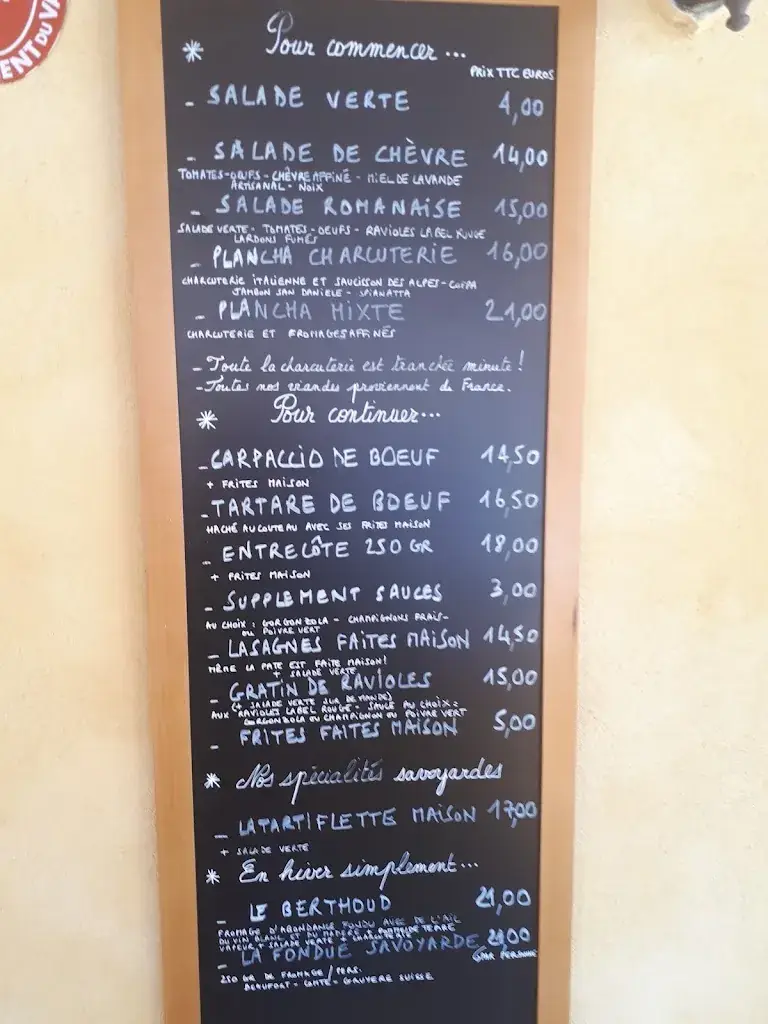 ENT DU VI
* Pour commencer...
PRIX TTC EUROS
- SALADE VERTE 4,00
- SALADE DE CHÈVRE 14,00
TOMATES - OEUFS - CHÈVRE AFFINÉ - MIEL DE LAVANDE
ARTISANAL - NOIX
- SALADE ROMANAISE 15,00
SALADE VERTE - TOMATES - OEUFS - RAVIOLES LABEL ROUGE
LARDONS FUMÉS
- PLANCHA CHARCUTERIE 16,00
CHARCUTERIE ITALIENNE ET SAUCISSON DES ALPES - COPPA
JAMBON SAN DANIELE - SPIANATTA
- PLANCHA MIXTE 21,00
CHARCUTERIE ET FROMAGES AFFINÉS
- Toute la charcuterie est tranchée minute !
- Toutes nos viandes proviennent de France.
* Pour continuer...
- CARPACCIO DE BOEUF 14,50
+ FRITES MAISON
- TARTARE DE BOEUF 16,50
HACHÉ AU COUTEAU AVEC SES FRITES MAISON
- ENTRECÔTE 250 GR 18,00
+ FRITES MAISON
- SUPPLEMENT SAUCES 3,00
AU CHOIX : GORGONZOLA - CHAMPIGNONS FRAIS -
OU POIVRE VERT
- LASAGNES FAITES MAISON 14,50
MÊME LA PATE EST FAITE MAISON !
+ SALADE VERTE
- GRATIN DE RAVIOLES 15,00
(+ SALADE VERTE SUR DEMANDE)
AUX RAVIOLES LABEL ROUGE - SAUCE AU CHOIX :
GORGONZOLA OU CHAMPIGNON OU POIVRE VERT
- FRITES FAITES MAISON 5,00
* Nos spécialités savoyardes
- LA TARTIFLETTE MAISON 17,00
+ SALADE VERTE
* En hiver simplement...
- LE BERTHOUD 21,00
FROMAGE D'ABONDANCE FONDU AVEC DE L'AIL
DU VIN BLANC ET DU MADÈRE + POMME DE TERRE
VAPEUR + SALADE VERTE + CHARCUTERIE
- LA FONDUE SAVOYARDE 21,00
PAR PERSONNE
250 GR DE FROMAGE / PERS.
BEAUFORT - COMTÉ - GRUYERE SUISSE